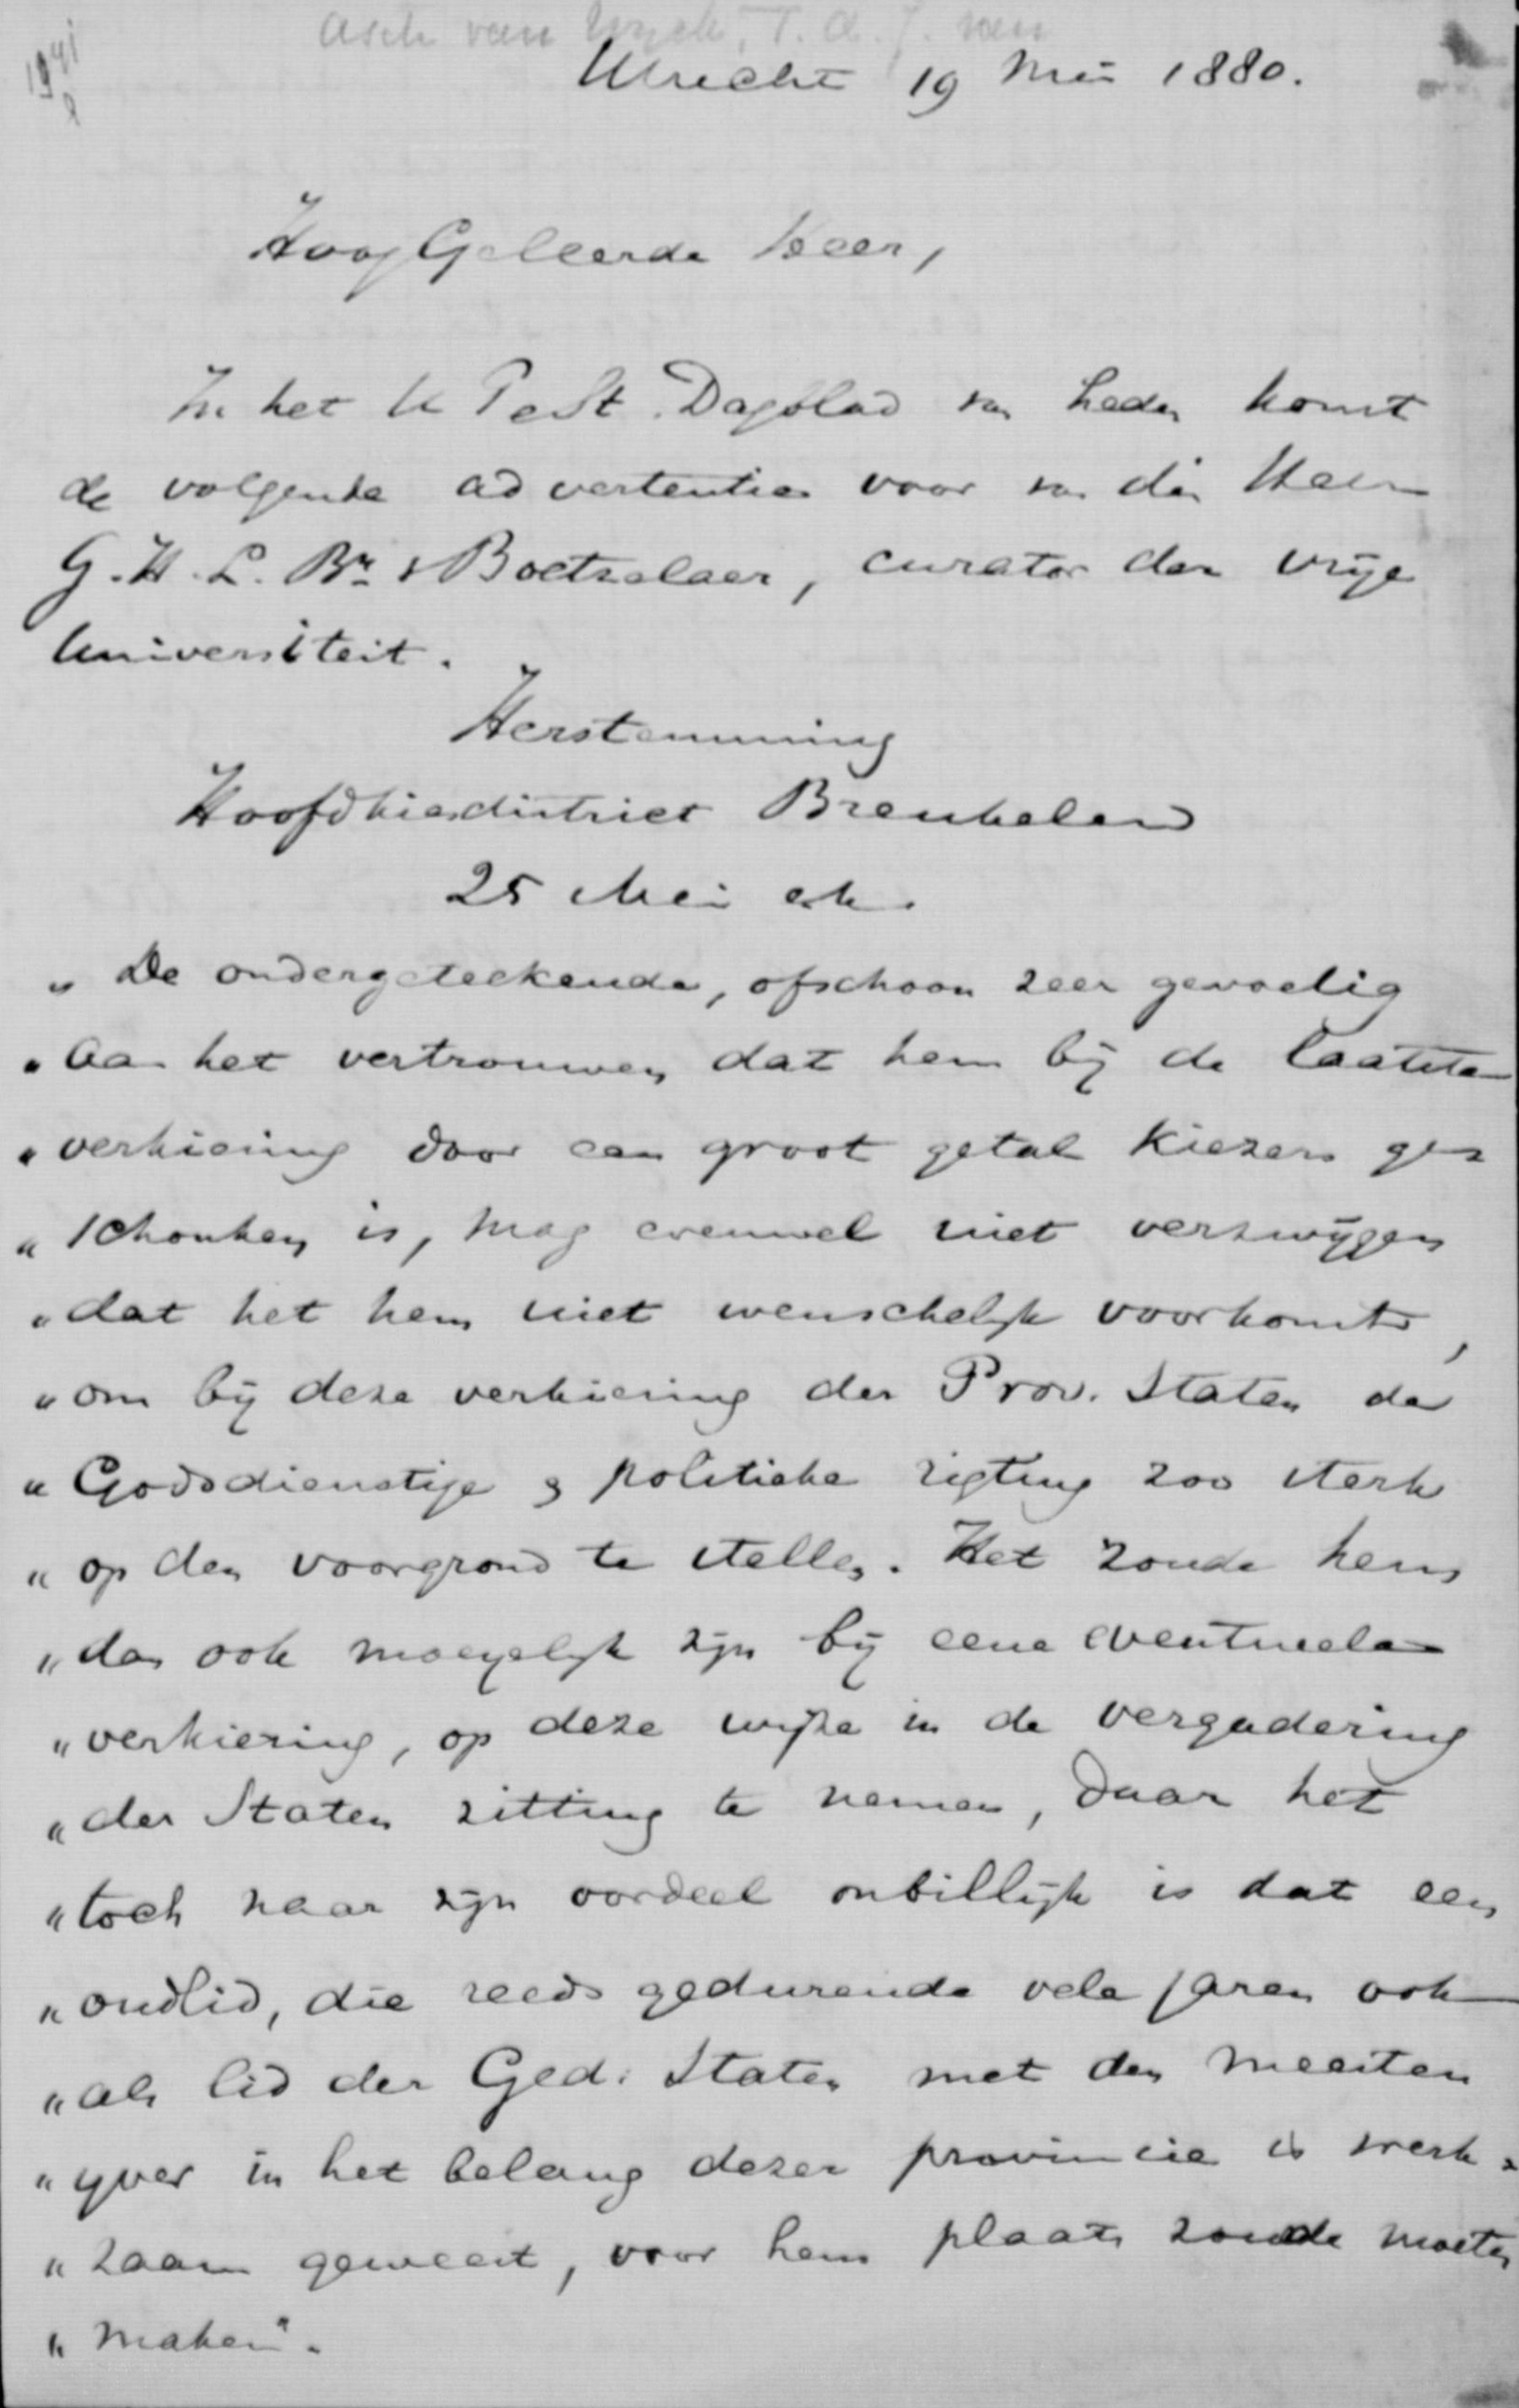 Asch van Wijck, T. A. J. van
Utrecht 19 Mei 1880.
HoogGeleerde Heer,
In het U P e St. Dagblad van heden komt
de volgende advertentie voor van den Heer
G. H. L. Bn v Boetzelaer, curator der Vrije
Universiteit.
Herstemming
Hoofdkiesdistrict Breukelen
25 Mei ek.
" De ondergeteekende, ofschoon zeer gevoelig
" aan het vertrouwen dat hem bij de laatste
" verkiezing door een groot getal kiezers ge=
" schonken is, mag evenwel niet verzwijgen
" dat het hem niet wenschelijk voorkomt,
" om bij deze verkiezing der Prov. Staten de
" Godsdienstige & politieke rigting zoo sterk
" op den voorgrond te stellen. Het zoude hem
" dan ook moeyelijk zijn bij eene eventueele
" verkiezing, op deze wijze in de vergadering
" der Staten zitting te nemen, daar het
" toch naar zijn oordeel onbillijk is dat een
" oudlid, die reeds gedurende vele jaren ook
" als lid der Ged: Staten met den meesten
" yver in het belang dezer provincie is werk=
" zaam geweest, voor hem plaats zoude moeten
" maken".